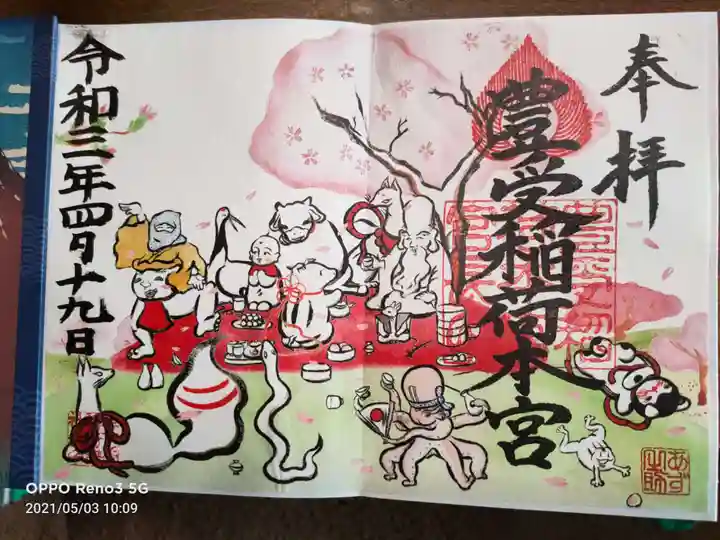 奉拝
豊受稲荷本宮
令和三年四月十九日
OPPO Reno3 5G
2021/05/03 10:09